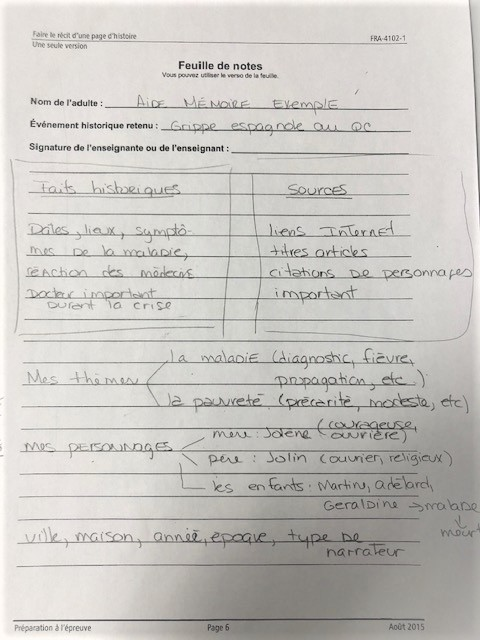 Faire le récit d'une page d'histoire FRA-4102-1
Une seule version
Feuille de notes
Vous pouvez utiliser le verso de la feuille.
Nom de l'adulte : AIDE MÉMOIRE EXEMPLE
Événement historique retenu : Grippe espagnole au QC
Signature de l'enseignante ou de l'enseignant :
Faits historiques
Dates, lieux, symptô-
mes De la maladie,
réaction des médecins
Docteur important
Durant la crise
Sources
liens Internet
titres articles
citations De personnages
important
Mes thèmes
la maladie (diagnostic, fièvre,
propagation, etc.)
la pauvreté (précarité, modeste, etc)
Mes PERSONNAGES
mère: Jolène (courageuse,
ouvrière)
père : Jolin (ouvrier, religieux)
les enfants: Martin, adélard,
Geraldine → malade
↓
meurt
ville, maison, année, époque, type De
narrateur
Préparation à l'épreuve Page 6 Août 2015